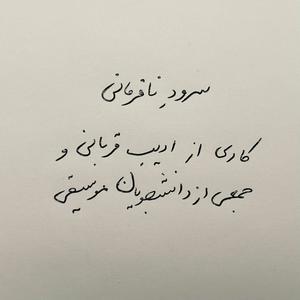 سرودِ نافرمانی
کاری از ادیب قربانی و
جمعی از دانشجویان موسیقی